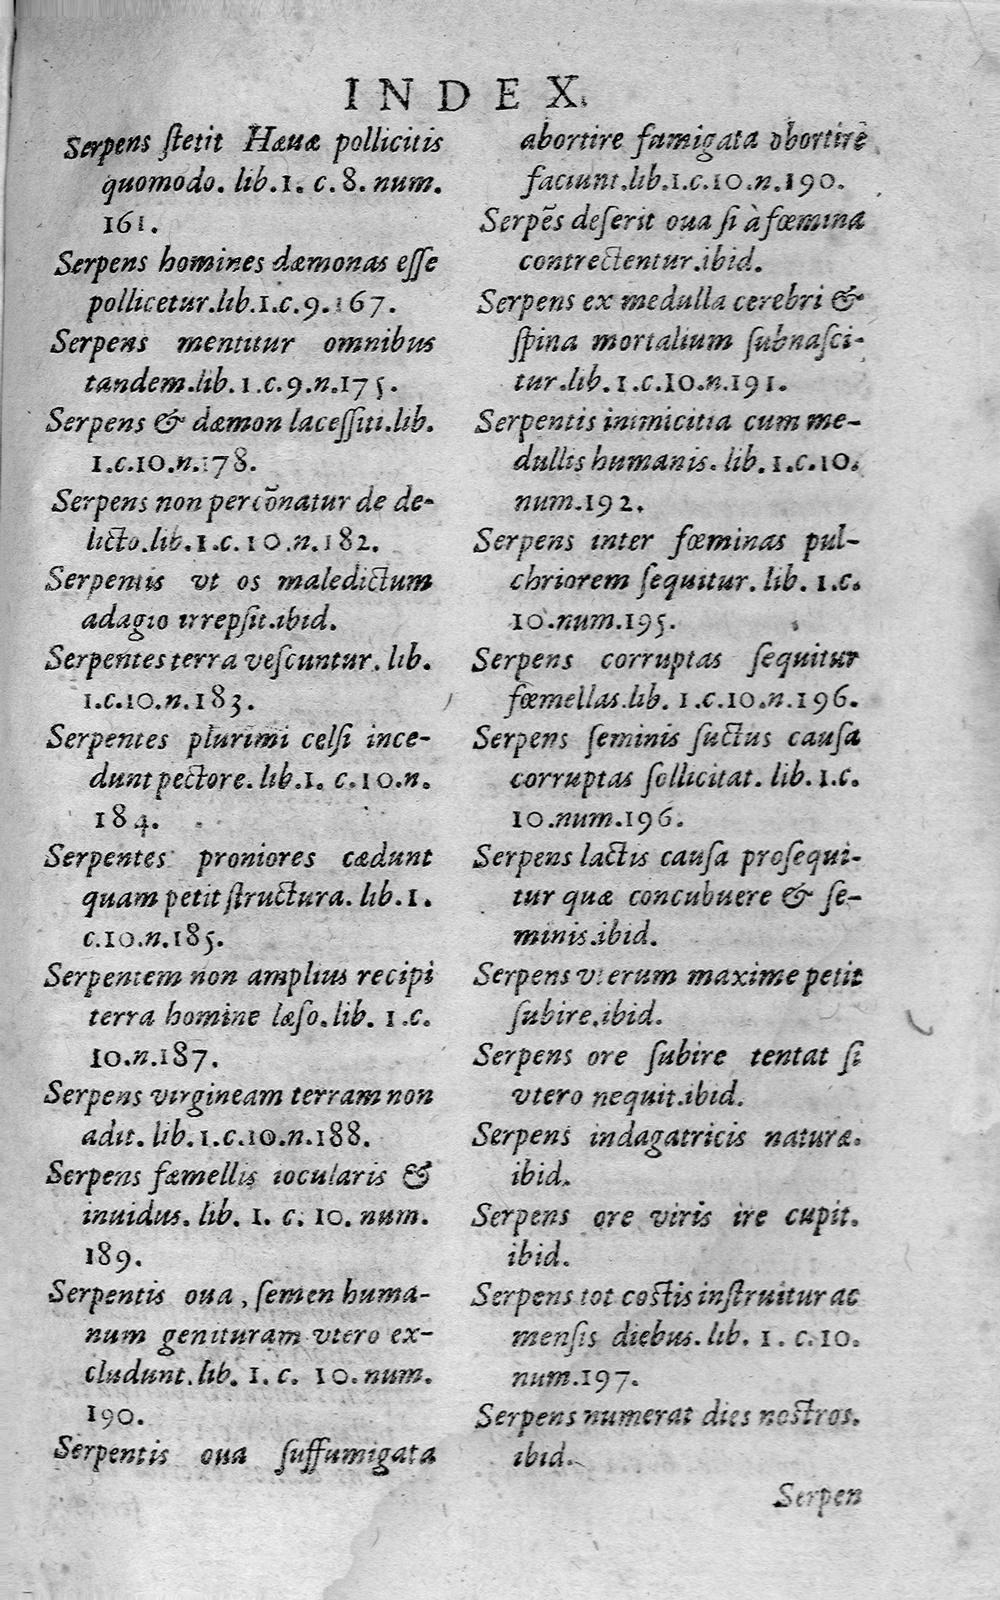 INDEX.
Serpens ſtetit Hæuæ pollicitis
quomodo. lib. 1. c. 8. num.
161.
Serpens homines dæmonas eſſe
pollicetur. lib. 1. c. 9. 167.
Serpens mentitur omnibus
tandem. lib. 1. c. 9. n. 175.
Serpens & dæmon laceſſiti. lib.
1. c. 10. n. 178.
Serpens non percõnatur de de-
licto. lib. 1. c. 10. n. 182.
Serpentis vt os maledictum
adagio irrepſit. ibid.
Serpentes terra veſcuntur. lib.
1. c. 10. n. 183.
Serpentes plurimi celſi ince-
dunt pectore. lib. 1. c. 10. n.
184.
Serpentes proniores cædunt
quam petit ſtructura. lib. 1.
c. 10. n. 185.
Serpentem non amplius recipi
terra homine læſo. lib. 1. c.
10. n. 187.
Serpens virgineam terram non
adit. lib. 1. c. 10. n. 188.
Serpens fæmellis iocularis &
inuidus. lib. 1. c. 10. num.
189.
Serpentis oua, ſemen huma-
num genituram vtero ex-
cludunt. lib. 1. c. 10. num.
190.
Serpentis oua ſuffumigata
abortire fumigata obortire
faciunt. lib. 1. c. 10. n. 190.
Serpẽs deſerit oua ſi à fœmina
contrectentur. ibid.
Serpens ex medulla cerebri &
ſpina mortalium ſubnaſci-
tur. lib. 1. c. 10. n. 191.
Serpentis inimicitia cum me-
dullis humanis. lib. 1. c. 10.
num. 192.
Serpens inter fœminas pul-
chriorem ſequitur. lib. 1. c.
10. num. 195.
Serpens corruptas ſequitur
fœmellas. lib. 1. c. 10. n. 196.
Serpens ſeminis ſuctus cauſa
corruptas ſollicitat. lib. 1. c.
10. num. 196.
Serpens lactis cauſa proſequi-
tur quæ concubuere & ſe-
minis. ibid.
Serpens vterum maxime petit
ſubire. ibid.
Serpens ore ſubire tentat ſi
vtero nequit. ibid.
Serpens indagatricis naturæ.
ibid.
Serpens ore viris ire cupit.
ibid.
Serpens tot coſtis inſtruitur ac
menſis diebus. lib. 1. c. 10.
num. 197.
Serpens numerat dies noſtros.
ibid.
Serpen